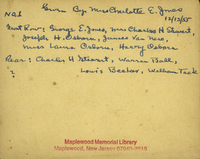 Given By Mrs Charlotte E. Jones
N28
12/12/55
Front Row: George E. Jones, Mrs Charles H. Stuart,
Joseph H. Osborn, James Van Ness,
Miss Laura Osborn, Henry Osborn
Rear: Charles H Stuart, Warren Ball,
? Louis Beeber, William Teck
Maplewood Memorial Library
Maplewood, New Jersey 07040-2618